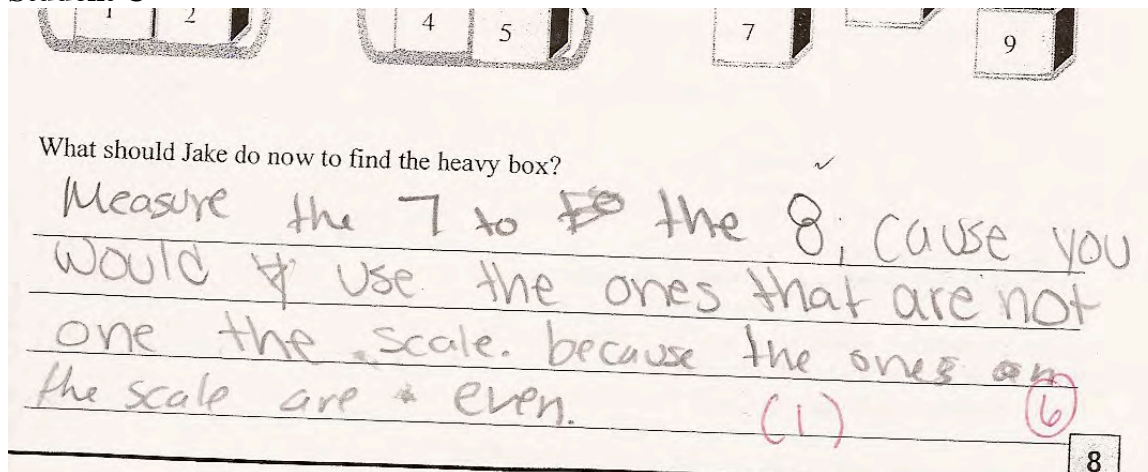 1 2 4 5 7 9
What should Jake do now to find the heavy box?
Measure the 7 to the 8, cause you
would use the ones that are not
one the scale. because the ones on
the scale are even. (1) 6
8